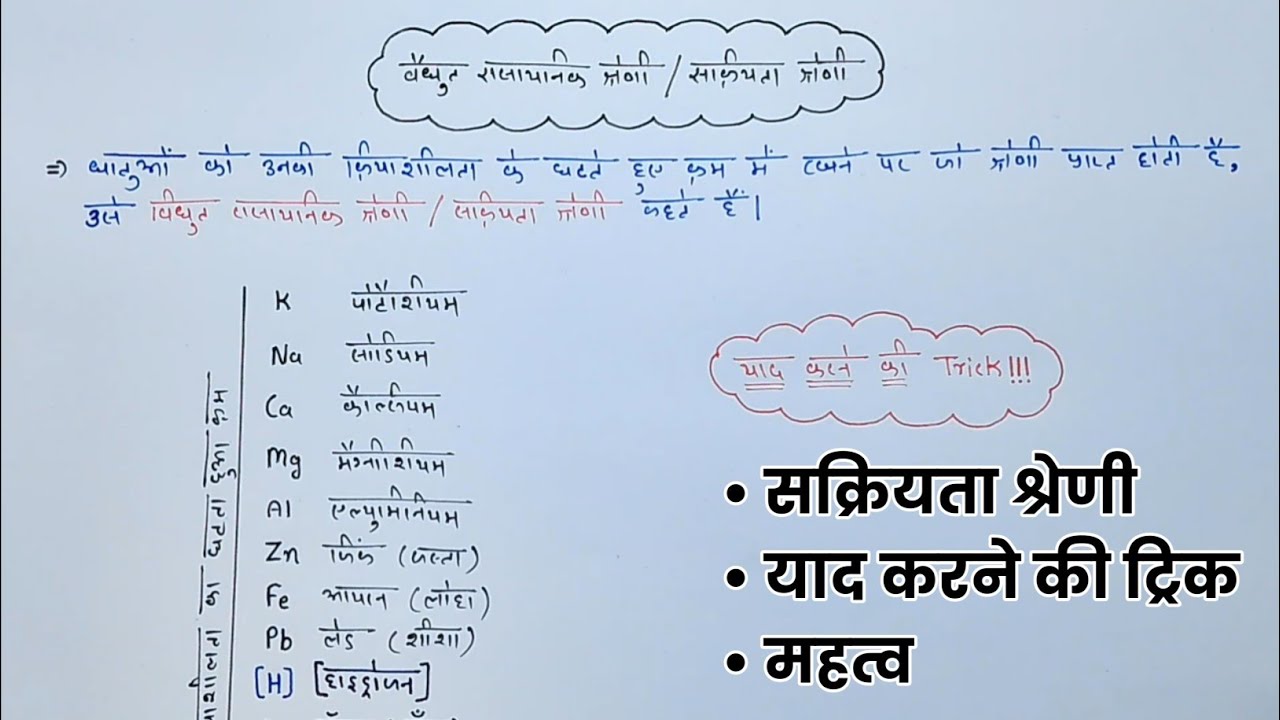 विद्युत रासायनिक श्रेणी / सक्रियता श्रेणी
⇒ धातुओं को उनकी क्रियाशीलता के घटते हुए क्रम में रखने पर जो श्रेणी प्राप्त होती है,
उसे विद्युत रासायनिक श्रेणी / सक्रियता श्रेणी कहते हैं।
K पोटैशियम
Na सोडियम
Ca कैल्शियम
Mg मैग्नीशियम
Al एल्युमीनियम
Zn जिंक (जस्ता)
Fe आयरन (लोहा)
Pb लेड (शीशा)
[H] [हाइड्रोजन]
का घटता हुआ क्रम
याद करने की Trick!!!
• सक्रियता श्रेणी
• याद करने की ट्रिक
• महत्व